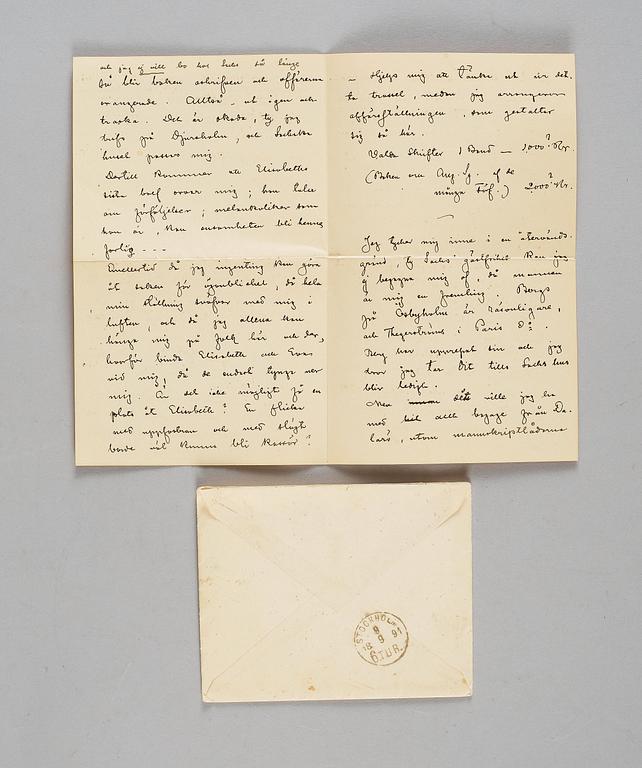 och jag ej vill bo hos Sachs så länge
Du blir boken och affärerna
arrangerade. Alltså - ut igen och
tracka. Det är skada, ty jag
trifs på Djursholm, och Sachska
huset passar mig.
Dertill kommer att Elisabeths
sista bref oroar mig; hon talar
om förföljelser; melankoliker som
hon är, kan ensamheten bli henne
farlig ---
Emellertid då jag ingenting kan göra
åt saken för ögonblicket, då hela
min ställning sväfvar med mig i
luften, och då jag allena kan
hänga mig på folk här och der,
hvarför binda Elisabeth och Eva
vid mig, då de endast tynga ner
mig. Är det icke möjligt få en
plats åt Elisabeth? En flicka
med uppfostran och med slägt
borde väl kunna bli kassör?
- Hjelp mig att tänka ut ur det-
ta trassel, medan jag arrangerar
affärsställningen, som gestaltar
sig så här.
Valda Skrifter 1 Band — 1000? Kr.
(Boken om Aug. Sg. af de
många Förf.) 2000? Kr.
Jag tycker mig inne i en återvänds-
gränd, ty Sachs' gästfrihet kan jag
ej begagna mig af, då mannen
är mig en främling. Bergs
på Ösbyholm är
och Thegerströms i Paris
Berg har upprepat sin och jag
tror jag tar dit tills Sachs hus
blir ledigt.
Men ville jag ha
med allt bagage från Da-
larö, utom manuskriptlådorna
STOCKHOLM
9
18 9 91
6 TUR.